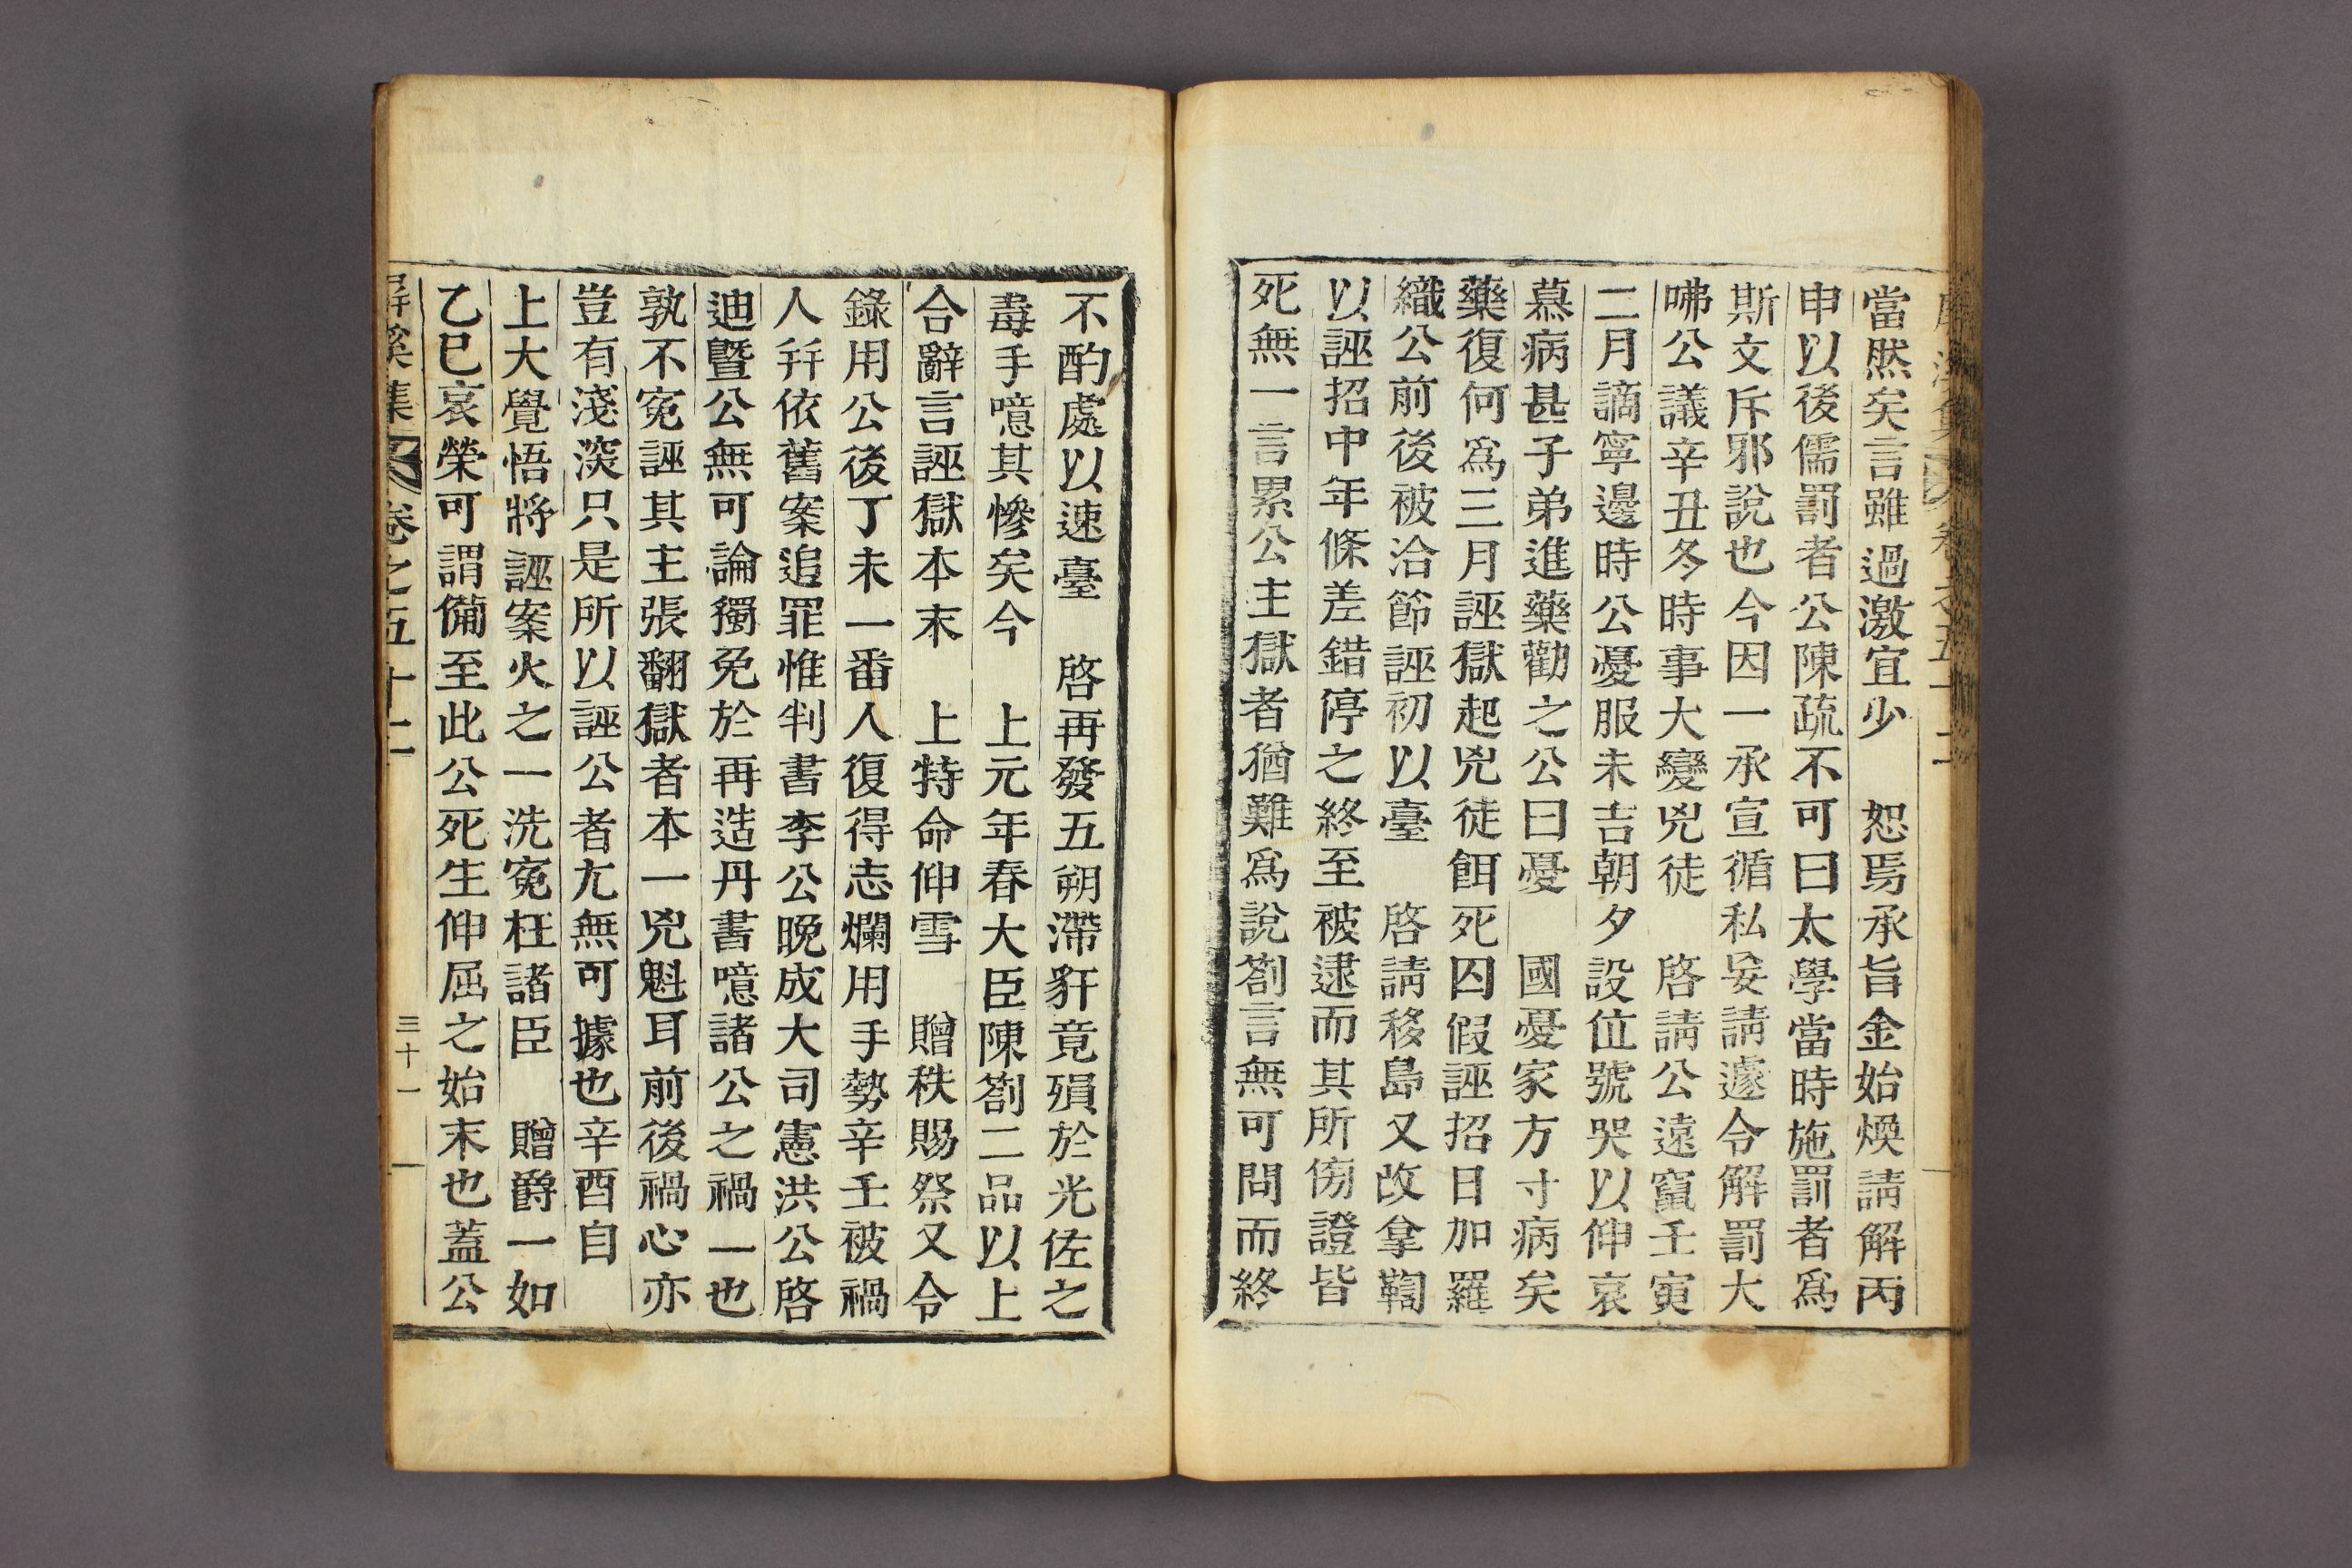 當然矣言雖過激宜少　恕焉承旨金始煥請解丙
申以後儒罰者公陳疏不可曰太學當時施罰者爲
斯文斥邪說也今因一承宣循私妄請遽令解罰大
咈公議辛丑冬時事大變兇徒　啓請公遠竄壬寅
二月謫寧邊時公憂服未吉朝夕設位號哭以伸哀
慕病甚子弟進藥勸之公曰憂　國憂家方寸病矣
藥復何爲三月誣獄起兇徒餌死囚假誣招日加羅
織公前後被洽節誣初以臺　啓請移島又改拿鞫
以誣招中年條差錯停之終至被逮而其所傍證皆
死無一言累公主獄者猶難爲說劄言無可問而終
不酌處以速臺　啓再發五朔滯犴竟殞於光佐之
毒手噫其慘矣今　上元年春大臣陳劄二品以上
合辭言誣獄本末　上特命伸雪　贈秩賜祭又令
錄用公後丁未一番人復得志爛用手勢辛壬被禍
人幷依舊案追罪惟判書李公晚成大司憲洪公啓
迪曁公無可論獨免於再造丹書噫諸公之禍一也
孰不寃誣其主張翻獄者本一兇魁耳前後禍心亦
豈有淺深只是所以誣公者尤無可據也辛酉自
上大覺悟將誣案火之一洗寃枉諸臣　贈爵一如
乙巳哀榮可謂備至此公死生伸屈之始末也蓋公
屛溪集　卷之五十二　三十一